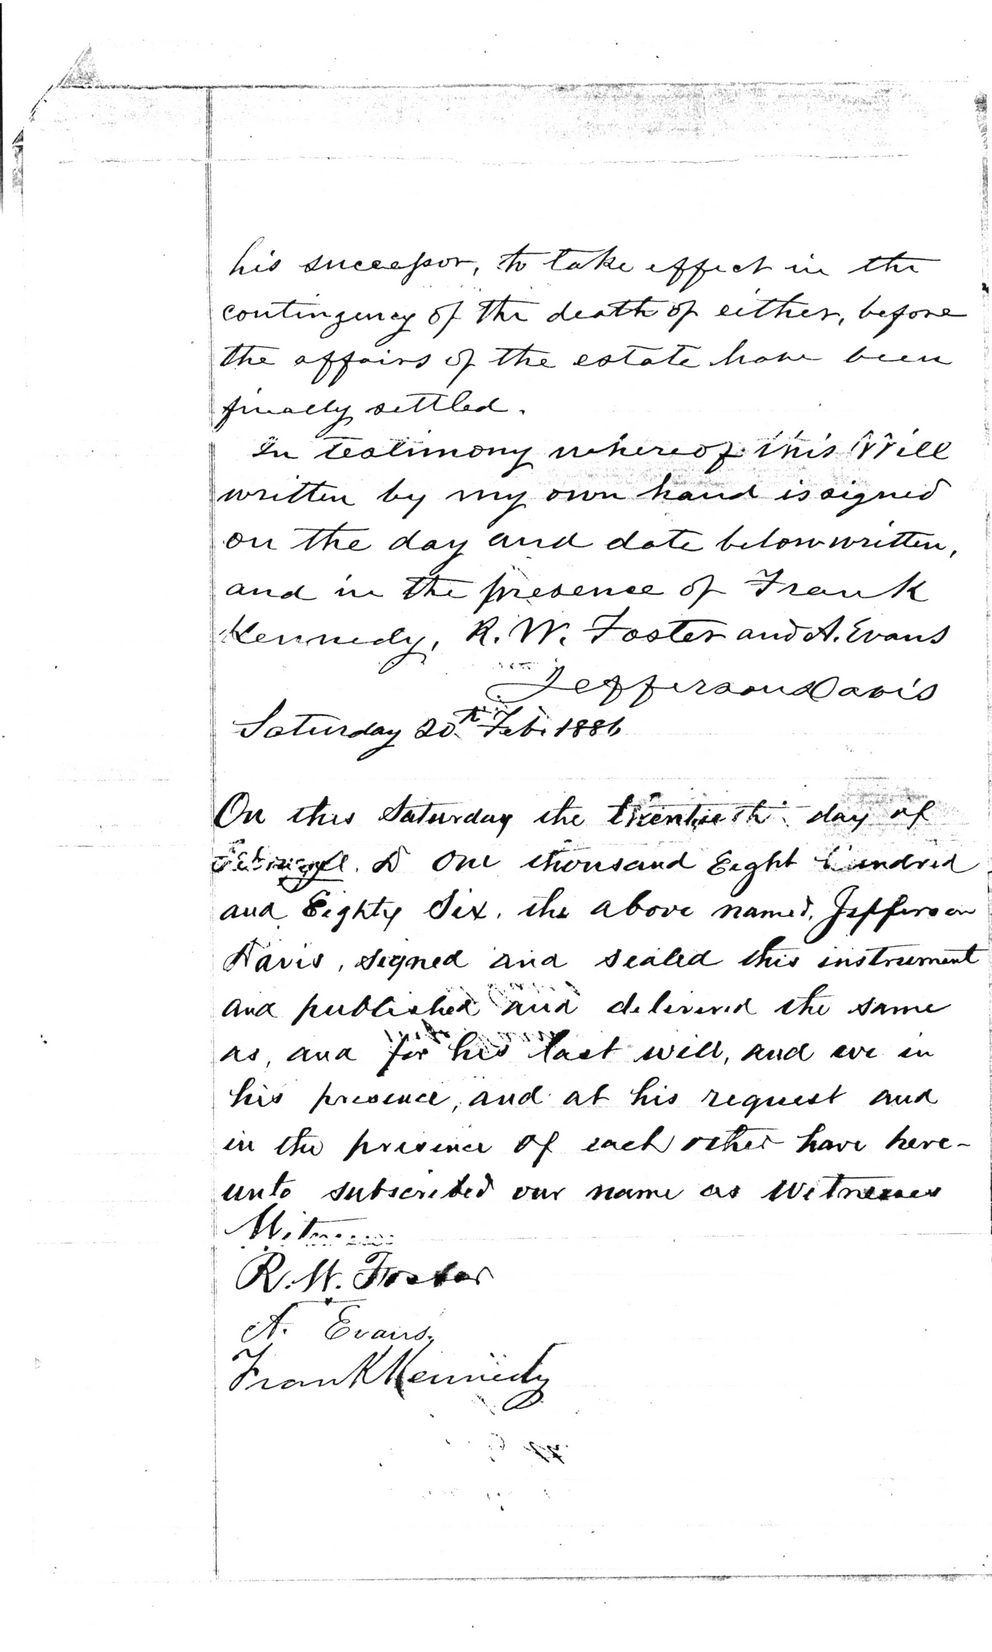 his successor, to take effect in the
contingency of the death of either, before
the affairs of the estate have been
finally settled.
In testimony whereof this Will
written by my own hand is signed
on the day and date below written,
and in the presence of Frank
Kennedy, R. W. Foster and A. Evans
Jefferson Davis
Saturday 20th Feb. 1886
On this Saturday the twentieth day of
D One thousand Eight hundred
and Eighty Six, the above named, Jefferson
Davis, signed and sealed this instrument
and published and delivered the same
as, and for his last will, and we in
his presence, and at his request and
in the presence of each other have here-
unto subscribed our name as Witnesses
Witnesses
R. W. Foster
A. Evans.
Frank Kennedy